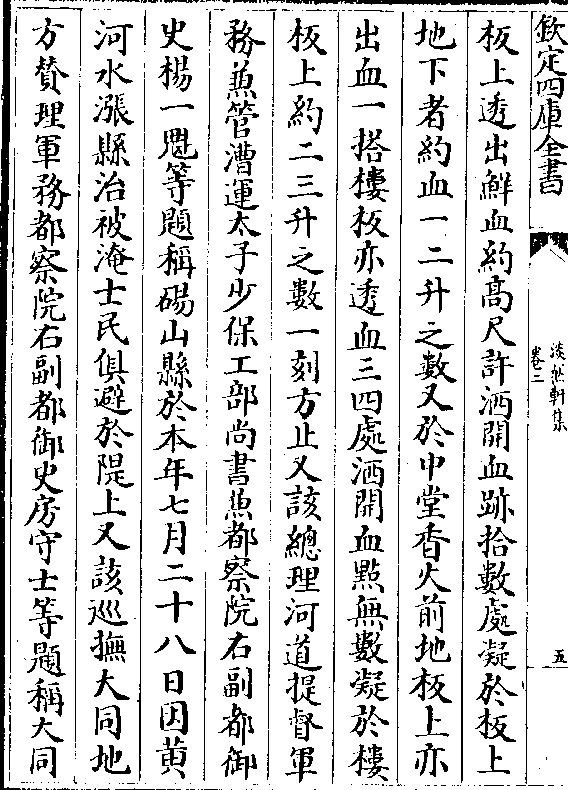 欽定四庫全書
淡然軒集
卷三
五
板上透出鮮血約高尺許洒開血跡拾數處凝於板上
地下者約血一二升之數又於中堂香火前地板上亦
出血一搭樓板亦透血三四處洒開血點無數凝於樓
板上約二三升之數一刻方止又該總理河道提督軍
務兼管漕運太子少保工部尚書兼都察院右副都御
史楊一魁等題稱碭山縣於本年七月二十八日因黄
河水漲縣治被淹士民俱避於隄上又該巡撫大同地
方贊理軍務都察院右副都御史房守士等題稱大同